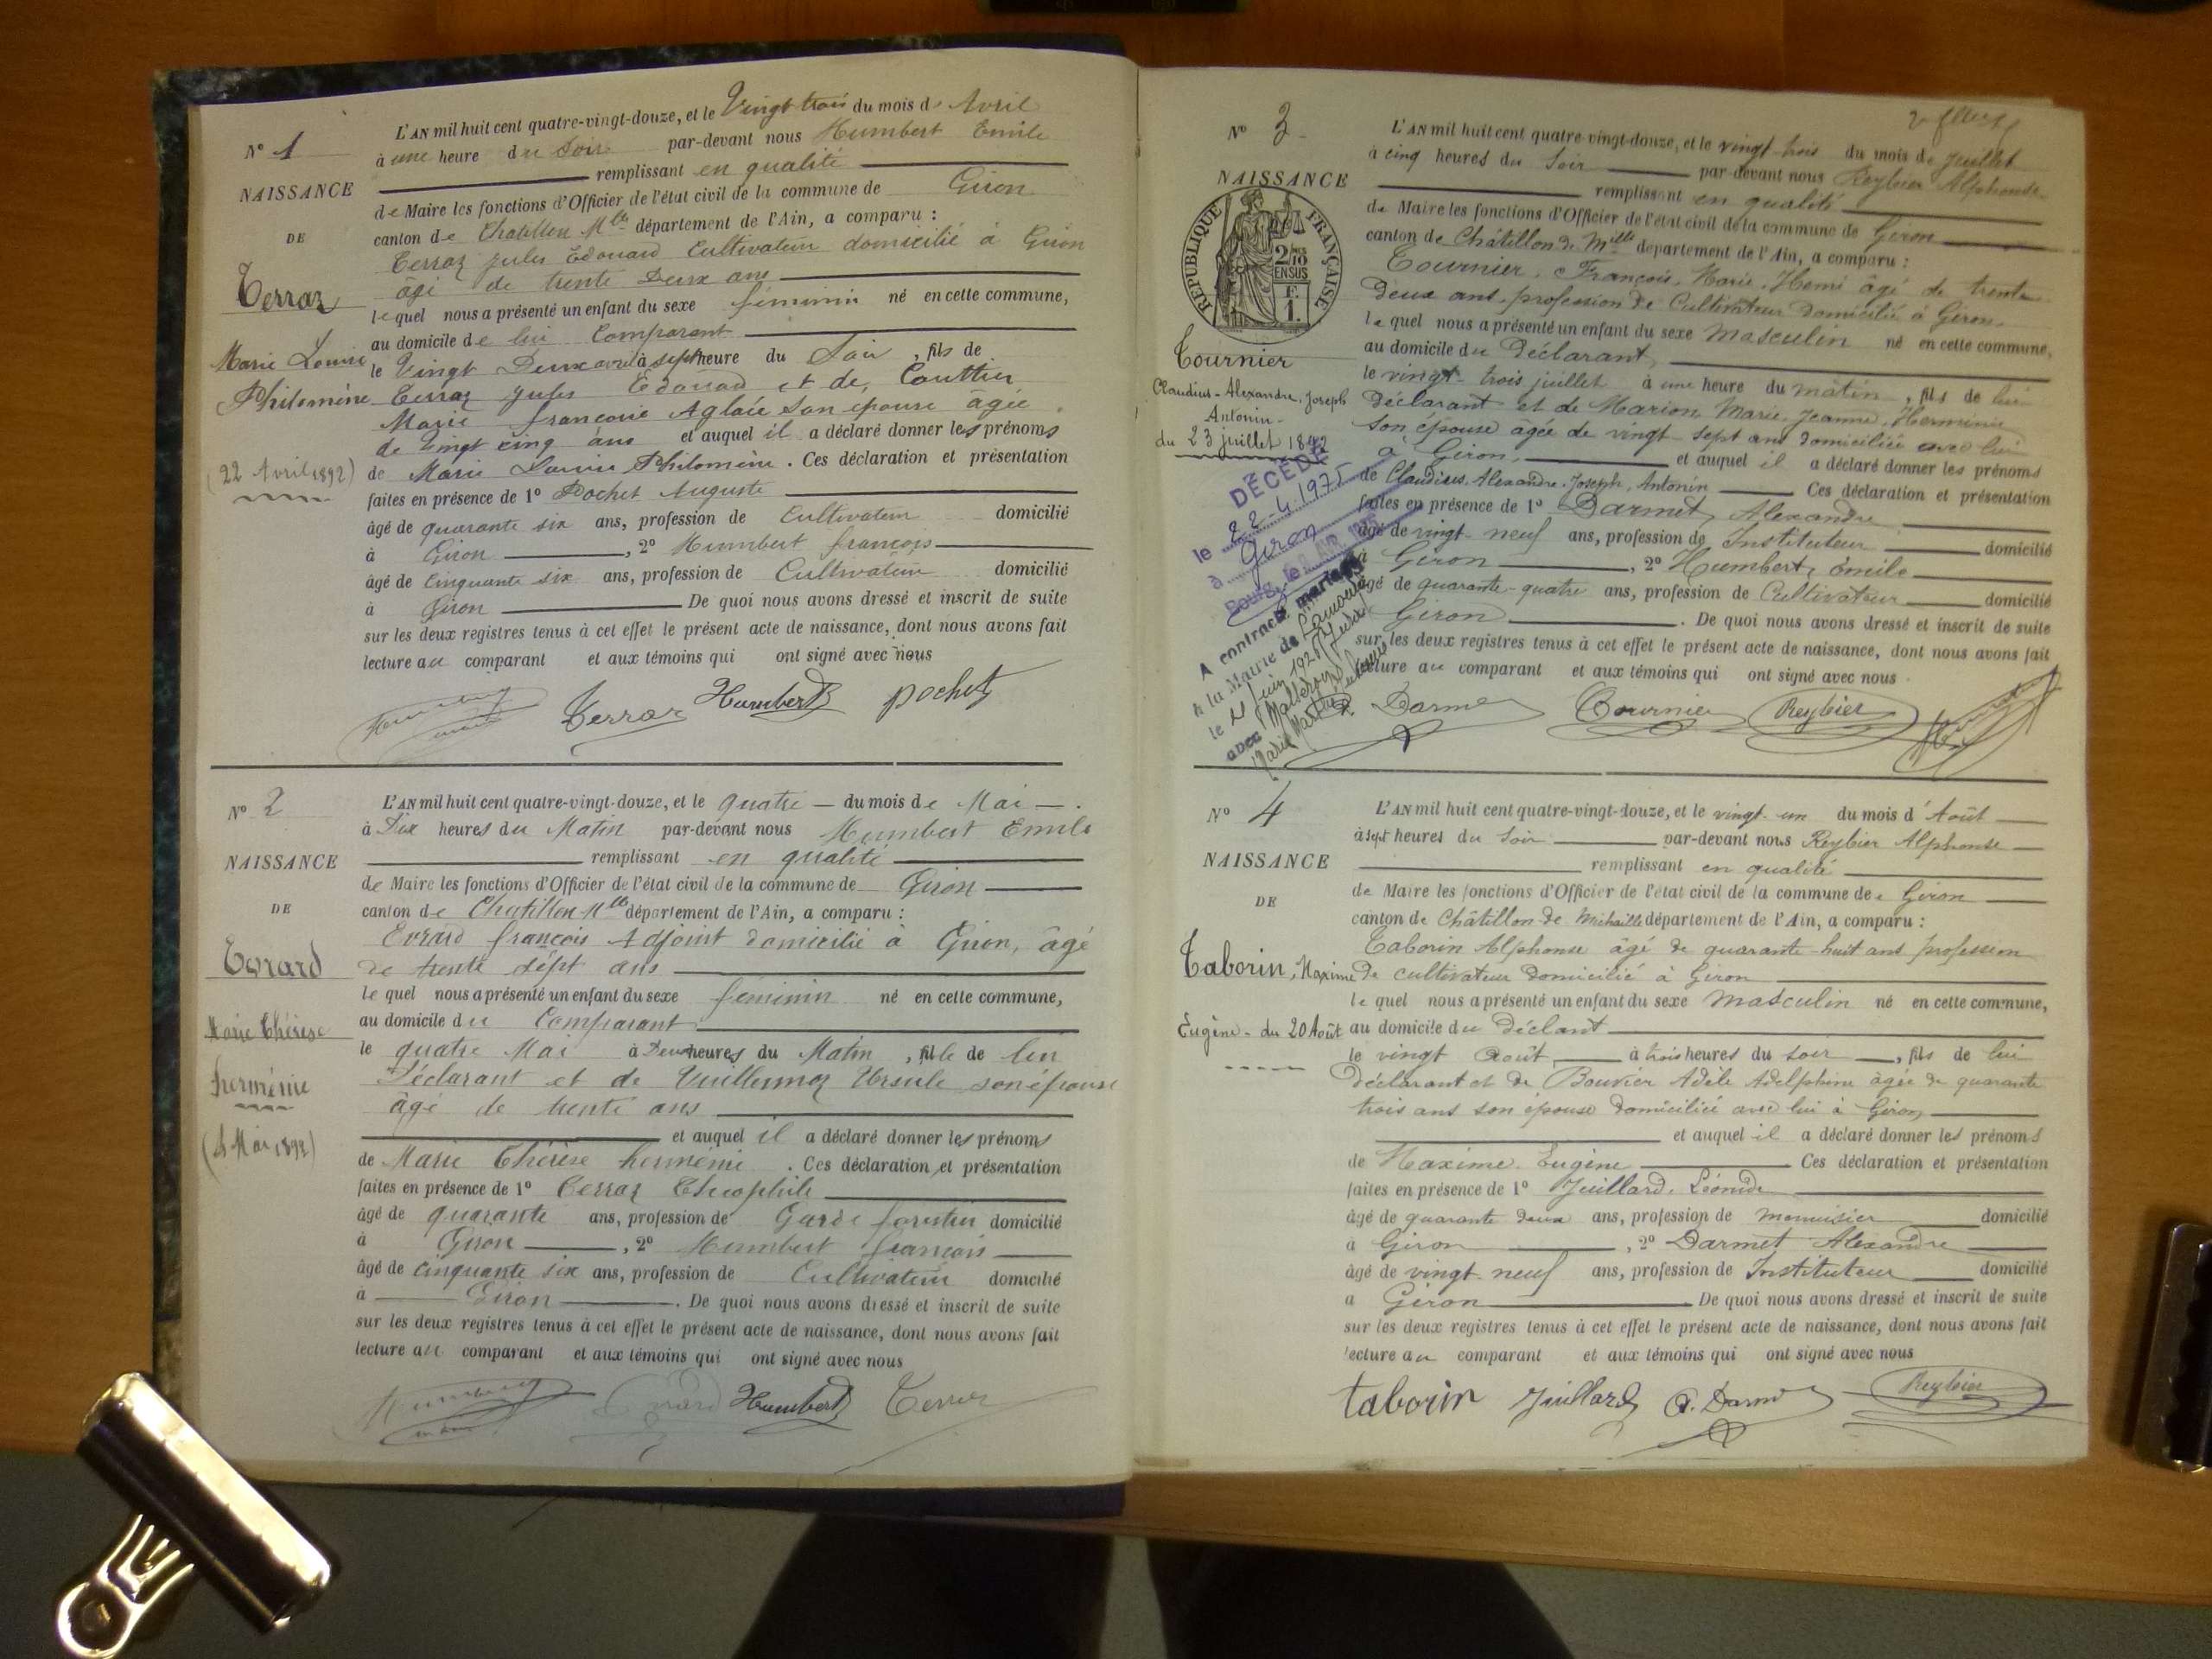 L'AN mil huit cent quatre-vingt-douze, et le Vingt trois du mois d' Avril
N° 1
à une heure du Soir par-devant nous Humbert Emile
remplissant en qualité
NAISSANCE
de Maire les fonctions d'Officier de l'état civil de la commune de Giron
DE
canton de Chatillon Mlle département de l'Ain, a comparu :
Terraz Jules Edouard Cultivateur domicilié à Giron
âgé de trente Deux ans
Terraz
lequel nous a présenté un enfant du sexe féminin né en cette commune,
au domicile de lui Comparant
Marie Louise
le Vingt Deux avril à sept heure du Soir, fils de
Philomène
Terraz Jules Edouad et de, Couttier
Marie francoise Aglaée Son épouse agée
de vingt cinq ans et auquel il a déclaré donner les prénoms
(22 Avril 1892)
de Marie Louise Philomène. Ces déclaration et présentation
faites en présence de 1° Pochet Auguste
âgé de quarante six ans, profession de Cultivateur domicilié
à Giron, 2° Humbert françois
âgé de Cinquante six ans, profession de Cultivateur domicilié
à Giron De quoi nous avons dressé et inscrit de suite
sur les deux registres tenus à cet effet le présent acte de naissance, dont nous avons fait
lecture au comparant et aux témoins qui ont signé avec nous
Terraz Humbert pochet
N° 2
L'AN mil huit cent quatre-vingt-douze, et le quatre du mois de Mai
à Dix heures du Matin par-devant nous Humbert Emile
NAISSANCE
remplissant en qualité
de Maire les fonctions d'Officier de l'état civil de la commune de Giron
DE
canton de Chatillon Mlle département de l'Ain, a comparu :
Evrard françois Adjoint domicilié à Giron, âgé
Evrard
de trente sept ans
lequel nous a présenté un enfant du sexe féminin né en cette commune,
Marie Thérèse
au domicile du Comparant
le quatre Mai à Deux heures du Matin, fille de lui
herménie
Déclarant et de Vuillermoz Ursule son épouse
âgé de trente ans
(4 Mai 1892)
et auquel il a déclaré donner les prénoms
de Marie Thérèse herménie. Ces déclaration et présentation
faites en présence de 1° Terraz Théophile
âgé de quarante ans, profession de Garde forestier domicilié
à Giron, 2° Humbert françois
âgé de Cinquante six ans, profession de Cultivateur domicilié
à Giron. De quoi nous avons dressé et inscrit de suite
sur les deux registres tenus à cet effet le présent acte de naissance, dont nous avons fait
lecture au comparant et aux témoins qui ont signé avec nous
Evrard Humbert Terraz
N° 3
L'AN mil huit cent quatre-vingt-douze, et le vingt-trois du mois de Juillet
à cinq heures du Soir par-devant nous Reybier Alphonse
NAISSANCE
remplissant en qualité
de Maire les fonctions d'Officier de l'état civil de la commune de Giron
REPUBLIQUE FRANÇAISE
2/10 EN SUS
F.
1.
canton de Châtillon de Mlle département de l'Ain, a comparu :
Tournier, François, Marie, Henri âgé de trente
deux ans, profession de Cultivateur domicilié à Giron
lequel nous a présenté un enfant du sexe Masculin né en cette commune,
au domicile du Déclarant
Tournier
le vingt-trois juillet à une heure du matin, fils de lui
Claudius-Alexandre, Joseph
Antonin
déclarant et de Marion Marie, Jeanne, Herminie
du 23 juillet 1892
son épouse âgée de vingt-sept ans domiciliée avec lui
à Giron, et auquel il a déclaré donner les prénoms
de Claudius, Alexandre, Joseph, Antonin Ces déclaration et présentation
DÉCÉDÉ
le 22-4-1975
à Giron
Bourg, le
faites en présence de 1° Darmet, Alexandre
âgé de vingt-neuf ans, profession de Instituteur domicilié
à Giron, 2° Humbert, Émile
âgé de quarante-quatre ans, profession de Cultivateur domicilié
à Giron. De quoi nous avons dressé et inscrit de suite
A contracté mariage
à la Mairie de Lamoura
(Jura)
avec
sur les deux registres tenus à cet effet le présent acte de naissance, dont nous avons fait
lecture au comparant et aux témoins qui ont signé avec nous
Darmet Tournier Reybier
N° 4
L'AN mil huit cent quatre-vingt-douze, et le vingt-un du mois d'Août
à sept heures du Soir par-devant nous Reybier Alphonse
NAISSANCE
remplissant en qualité
de Maire les fonctions d'Officier de l'état civil de la commune de Giron
DE
canton de Châtillon-de Michaille département de l'Ain, a comparu :
Taborin Alphonse âgé de quarante-huit ans profession
Taborin, Maxime
de cultivateur domicilié à Giron
lequel nous a présenté un enfant du sexe Masculin né en cette commune,
Eugène - du 20 Août
au domicile du Déclant
le vingt Août, à trois heures du soir, fils de lui
déclarant et de Bouvier Adèle Adelphine âgée de quarante
trois ans son épouse domiciliée avec lui à Giron,
et auquel il a déclaré donner les prénoms
de Maxime, Eugène Ces déclaration et présentation
faites en présence de 1° Juillard, Léonide
âgé de quarante deux ans, profession de menuisier domicilié
à Giron, 2° Darmet Alexandre
âgé de vingt-neuf ans, profession de Instituteur domicilié
à Giron De quoi nous avons dressé et inscrit de suite
sur les deux registres tenus à cet effet le présent acte de naissance, dont nous avons fait
lecture au comparant et aux témoins qui ont signé avec nous
taborin Juillard A. Darmet Reybier